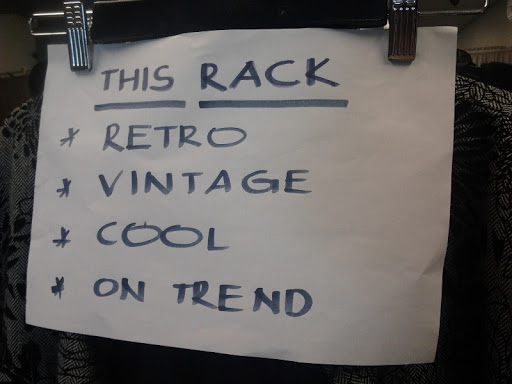 THIS RACK
* RETRO
* VINTAGE
* COOL
* ON TREND